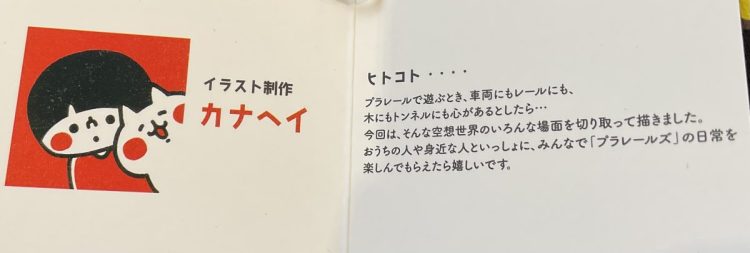 イラスト制作
カナヘイ
ヒトコト・・・・
プラレールで遊ぶとき、車両にもレールにも、
木にもトンネルにも心があるとしたら…
今回は、そんな空想世界のいろんな場面を切り取って描きました。
おうちの人や身近な人といっしょに、みんなで「プラレールズ」の日常を
楽しんでもらえたら嬉しいです。